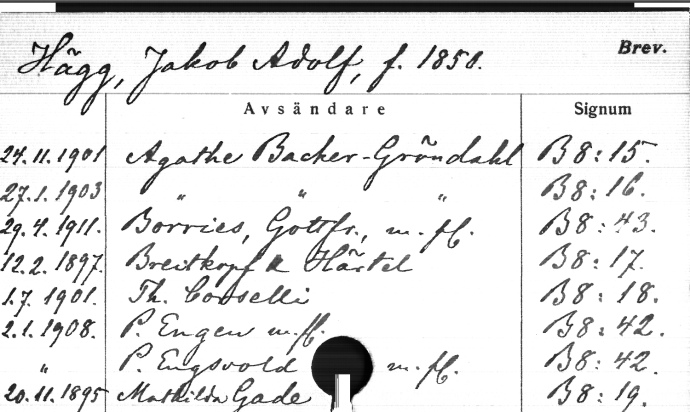 Hägg, Jakob Adolf, f. 1850. Brev.
Avsändare Signum
24.11.1901 Agathe Backer-Gröndahl B 8:15.
27.1.1903 " " " B 8:16.
29.4.1911. Borries, Gottfr., m. fl. B 8:43.
12.2.1897. Breitkopf & Härtel B 8:17.
1.7.1901. Th. B 8:18.
2.1.1908. P. Engen m. fl. B 8:42.
" P. Engsvold m. fl. B 8:42.
20.11.1895 Mathilda Gade B 8:19.